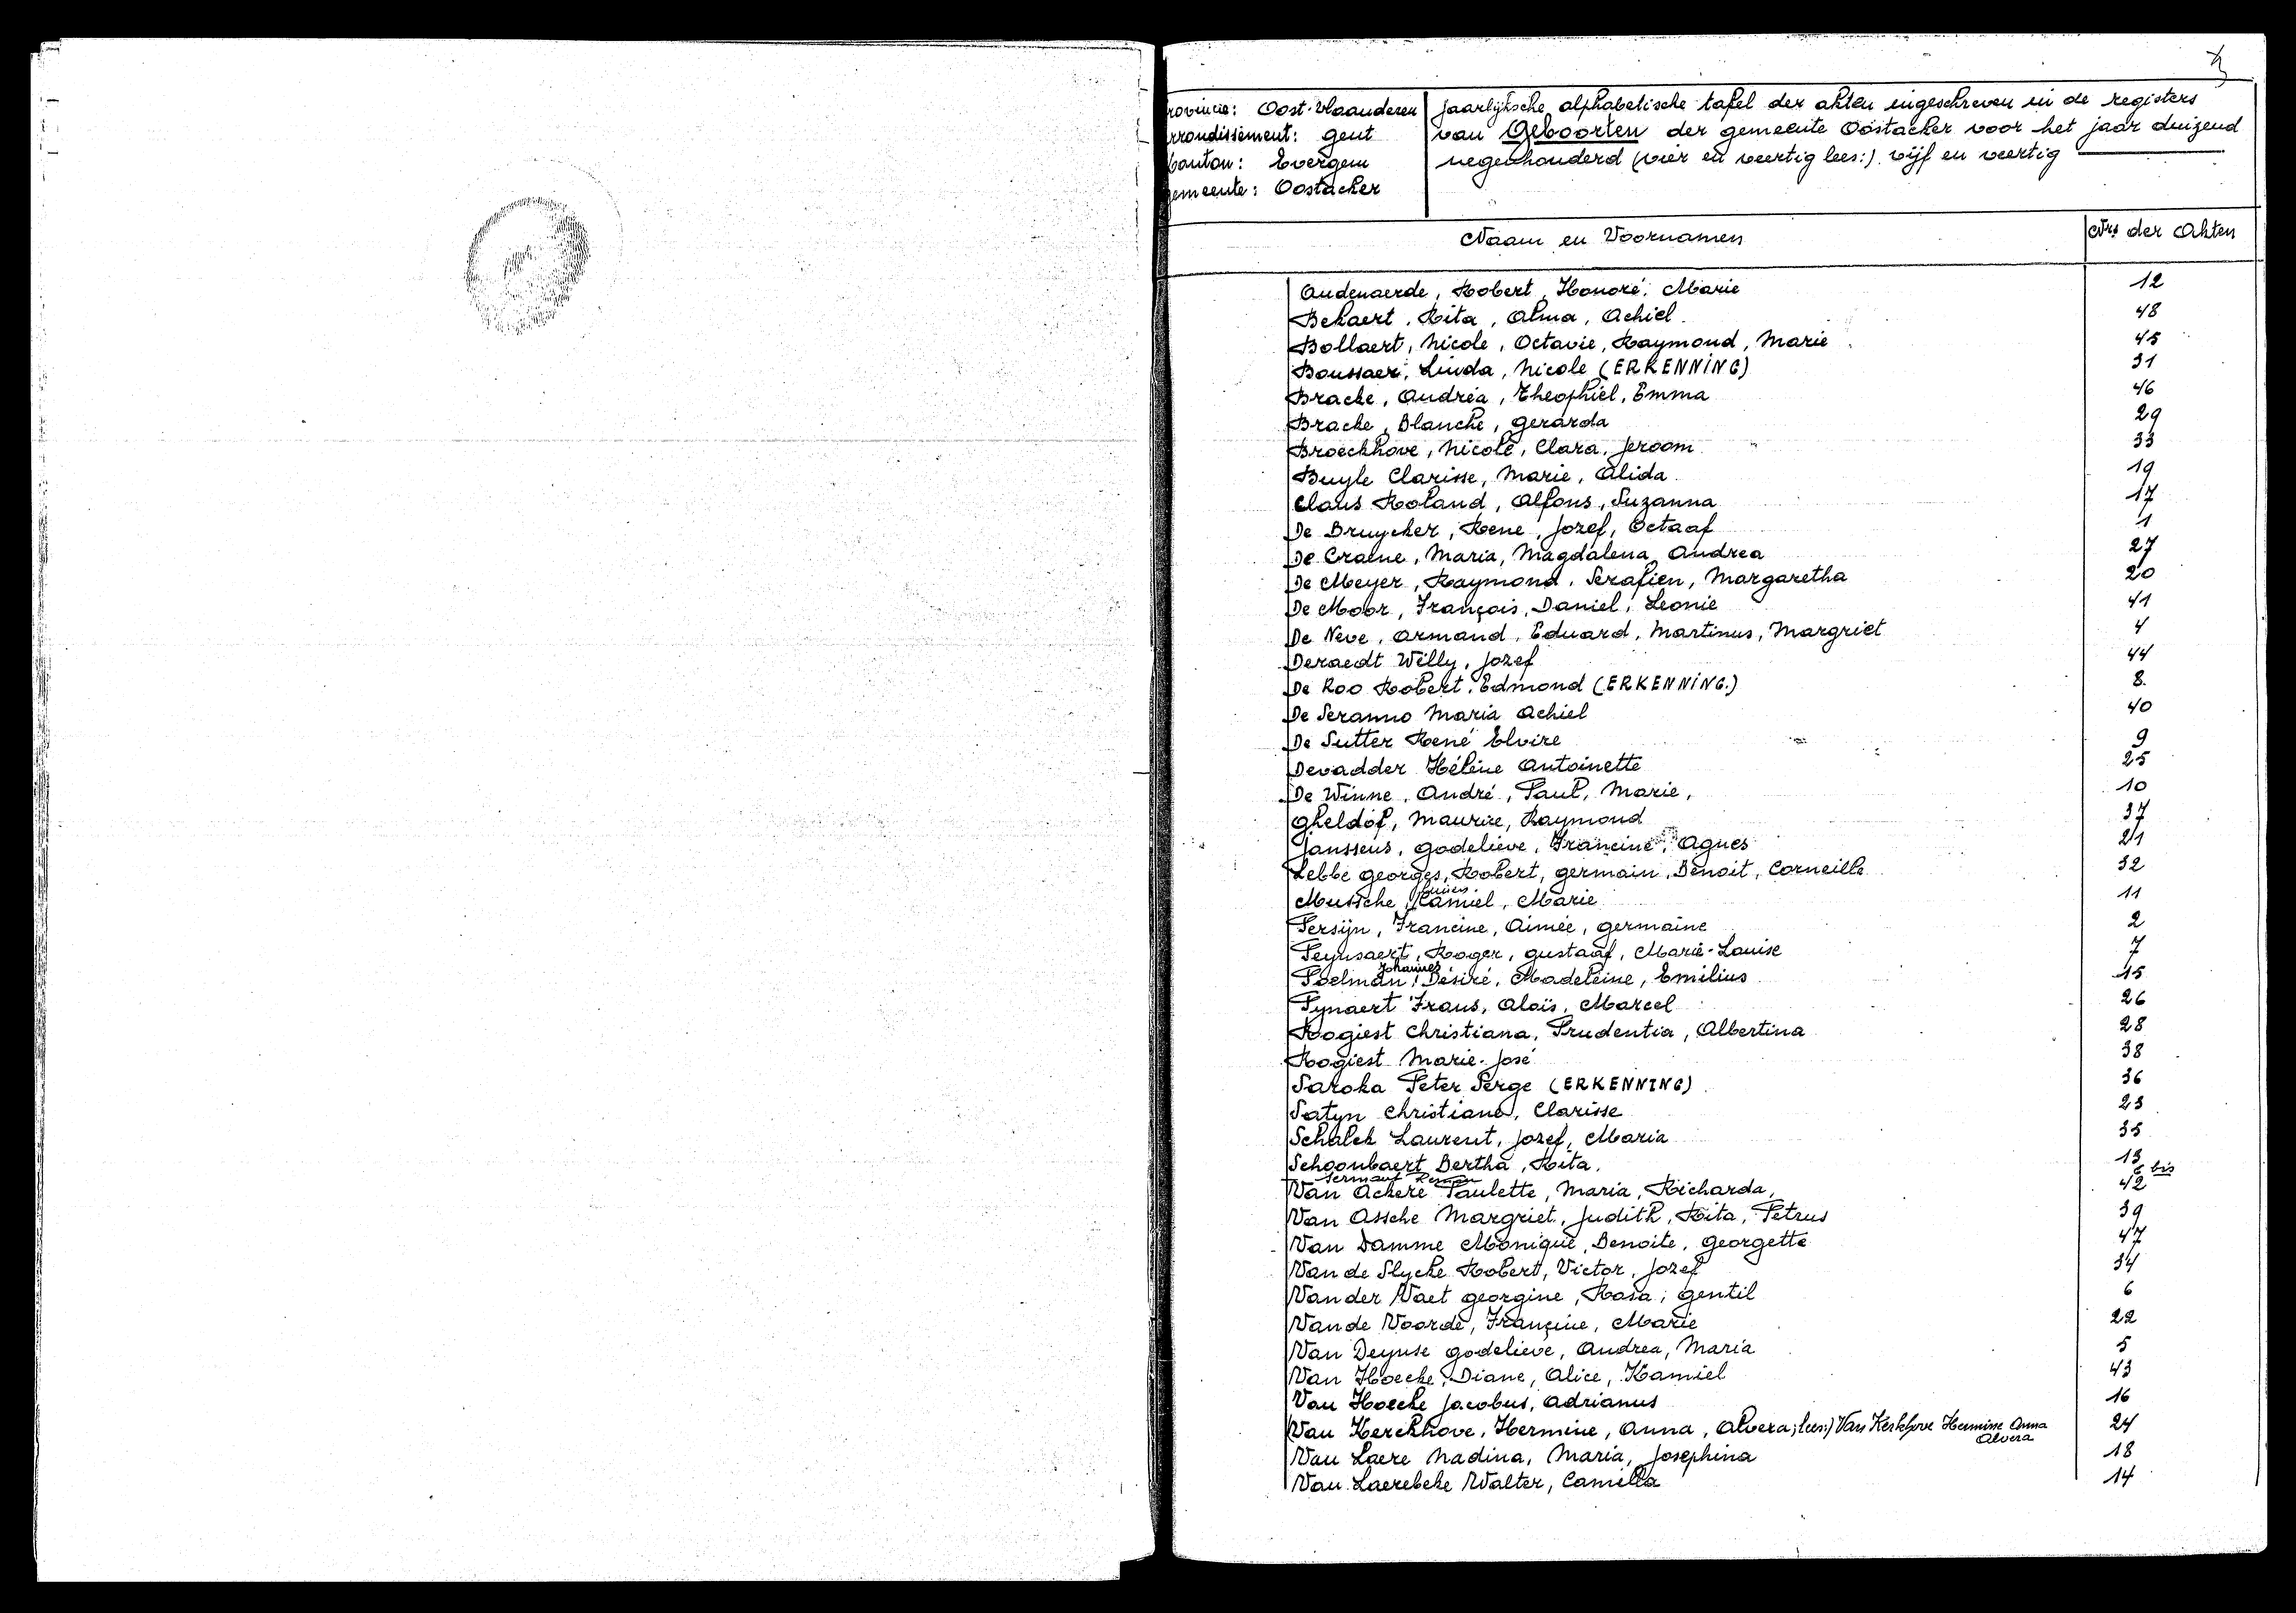 rovincie: Oost-Vlaanderen
rrondissement: Gent
Canton: Evergem
Gemeente: Oostacker
Jaarlijksche alphabetische tafel der akten ingeschreven in de registers
van Geboorten der gemeente Oostacker voor het jaar duizend
negenhonderd (vier en veertig lees:) vijf en veertig
Naam en Voornamen Nrs der Akten
Audenaerde, Robert, Honoré, Marie 12
Bekaert, Rita, Alma, Achiel 48
Bollaert, Nicole, Octavie, Raymond, Marie 45
Boussaer, Linda, Nicole (ERKENNING) 31
Bracke, Andréa, Theophiel, Emma 46
Bracke, Blanche, Gerarda 29
Broeckhove, Nicole, Clara, Jeroom 33
Buyle Clarisse, Marie, Alida 19
Claus Roland, Alfons, Suzanna 17
De Bruycker, Rene, Jozef, Octaaf 1
De Craene, Maria, Magdalena, Andrea 27
De Meyer, Raymond, Serafien, Margaretha 20
De Moor, François, Daniel, Leonie 41
De Neve, Armand, Eduard, Martinus, Margriet 4
Deraedt Willy, Jozef 44
De Roo Robert, Edmond (ERKENNING.) 8.
De Seranno Maria Achiel 40
De Sutter René Elvire 9
Devadder Hélène Antoinette 25
De Winne, André, Paul, Marie, 10
Gheldof, Maurice, Raymond 37
Janssens, Godelieve, Francine, Agnes 21
Lebbe Georges, Robert, Germain, Benoit, Corneille 32
Mussche, Camiel, Marie 11
Persijn, Francine, Aimée, Germaine 2
Peynsaert, Roger, Gustaaf, Marie-Louise 7
Johannes
Poelman, Désiré, Madeleine, Emilius 15
Pynaert Frans, Aloïs, Marcel 26
Rogiest Christiana, Prudentia, Albertina 28
Rogiest Marie-José 38
Saroka Peter Serge (ERKENNING) 36
Satyn Christiane, Clarisse 23
Schalck Laurent, Jozef, Maria 35
Schoonbaert Bertha, Rita. 13
6 bis
Van Ackere Paulette, Maria, Richarda, 42
Van Assche Margriet, Judith, Rita, Petrus 39
Van Damme Monique, Benoite, Georgette 47
Van de Slycke Robert, Victor, Jozef 34
Van der Vaet Georgine, Rosa, Gentil 6
Van de Voorde, Françine, Marie 22
Van Deynse Godelieve, Andrea, Maria 5
Van Hoecke, Diane, Alice, Kamiel 43
Van Hoecke Jacobus, Adrianus 16
Van Kerckhove, Hermine, Anna, Alvera; lees:) Van Kerkhove Hermine Anna 24
Alvera
Van Laere Nadina, Maria, Josephina 18
Van Laerebeke Walter, Camilla 14